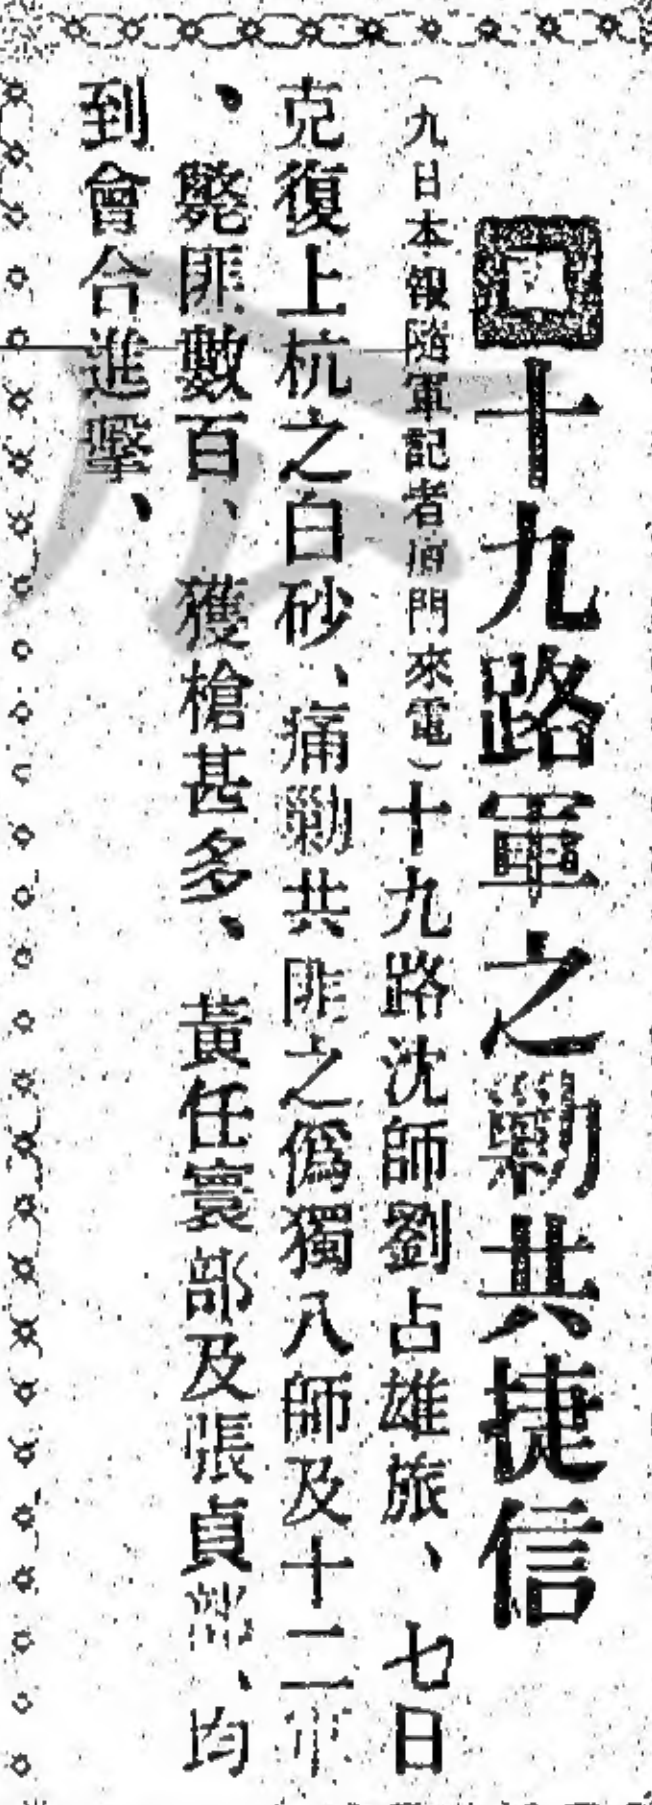 十九路軍之剿共捷信
(九日本報隨軍記者廈門來電)十九路沈師劉占雄旅、七日
克復上杭之白砂、痛剿共匪之僞獨八師及十二軍
、斃匪數百、獲槍甚多、黃任寰部及張貞部、均
到會合進擊、